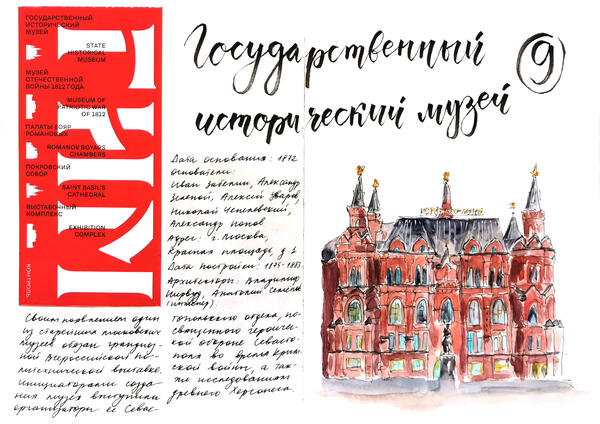 ГОСУДАРСТВЕННЫЙ
ИСТОРИЧЕСКИЙ
МУЗЕЙ
STATE
HISTORICAL
MUSEUM
МУЗЕЙ
ОТЕЧЕСТВЕННОЙ
ВОЙНЫ 1812 ГОДА
MUSEUM OF
PATRIOTIC WAR
OF 1812
ПАЛАТЫ БОЯР
РОМАНОВЫХ
ROMANOV BOYARS
CHAMBERS
ПОКРОВСКИЙ
СОБОР
SAINT BASIL'S
CATHEDRAL
ВЫСТАВОЧНЫЙ
КОМПЛЕКС
EXHIBITION
COMPLEX
КОНТРОЛЬ
ГИМ
Государственный
исторический музей
9
Дата основания: 1872
Основатели:
Иван Забелин, Александр
Зеленой, Алексей Уваров,
Николай Чепелевский,
Александр Попов
Адрес: г. Москва,
Красная площадь, д. 1
Дата постройки: 1875-1883
Архитекторы: Владимир
Шервуд, Анатолий Семёнов
(инженер)
Своим появлением один
из старейших московских
музеев обязан грандиоз-
ной Всероссийской по-
литехнической выставке.
Инициаторами созда-
ния музея выступили
организаторы её Севас-
топольского отдела, по-
священного героичес-
кой обороне Севасто-
поля во время Крым-
ской войны, а так-
же исследованиям
древнего Херсонеса.